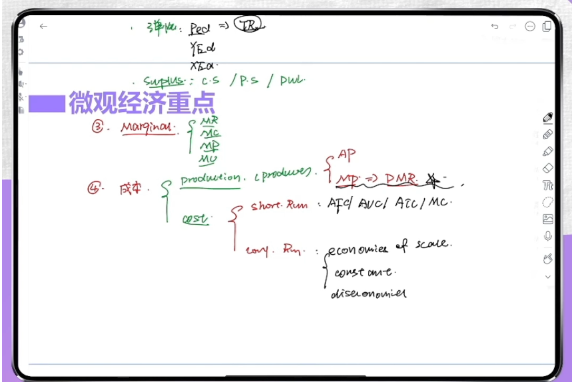 弹性: Ped => TR
YEd
XEd
Surplus: C.S / P.S / DWL
微观经济重点
③. Marginal. MR
MC
MP
MU
④. 成本. production. (produce). AP
MP => DMR
cost short. Run : AFC/ AVC/ ATC/ MC.
Long. Run. : economies of scale.
constant.
diseconomies